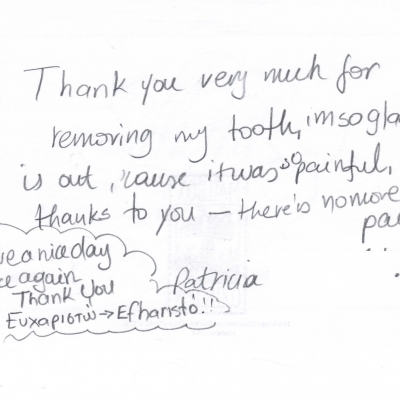 Thank you very much for
removing my tooth, im so gla
is out, 'cause it was so painful,
thanks to you – there's no more
pai
ve a nice day
ce again
Thank You
Ευχαριστώ → Efharistó!!
Patricia